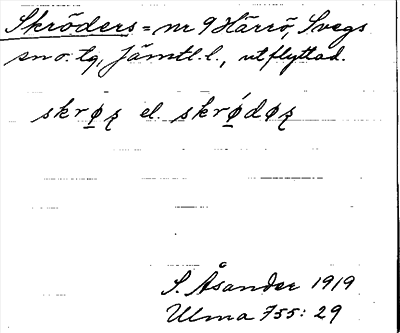 Skröders = nr 9 Härrö, Svegs
sn o. tg, Jämtl. l., utflyttad.
skrø̱ʐ el. skrǿ̱døʐ
S. Åsander 1919
Ulma 755: 29